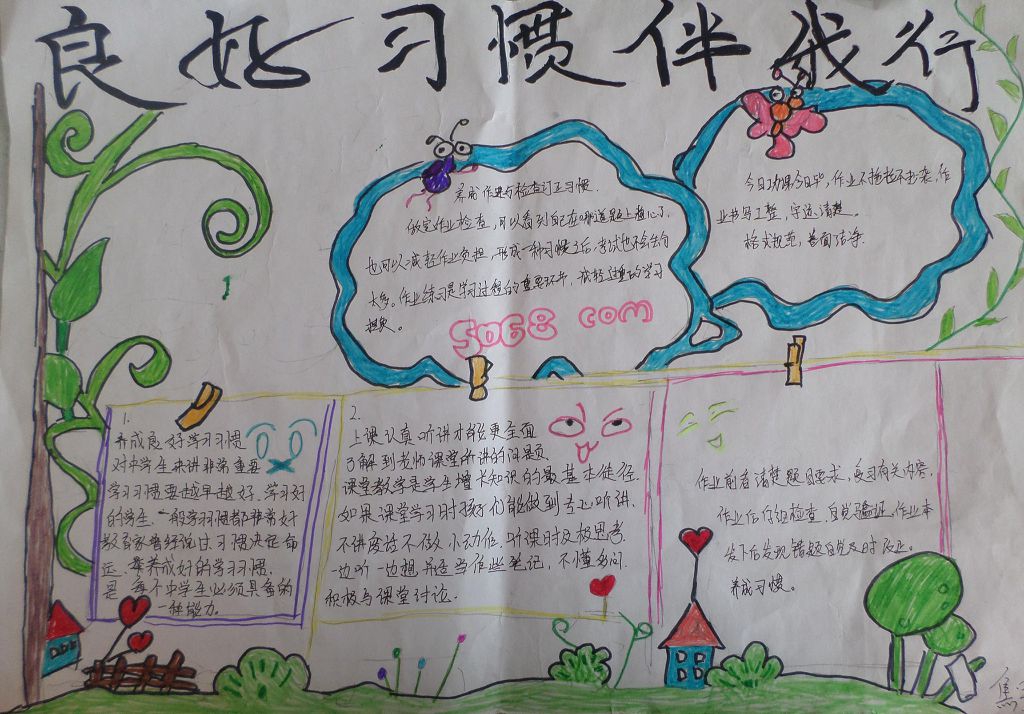 良好习惯伴我行
养成作业后检查订正习惯.
做完作业检查,可以看到自己在哪道题上粗心了,
也可以减轻作业负担,形成一种习惯之后,考试也不会失分
太多。作业练习是学习过程的重要环节,减轻过重的学习
担负。
5068 com
今日功课今日毕,作业不拖拉不抄袭,作
业书写工整,字迹清楚.
格式规范,卷面洁净.
1.
养成良好学习习惯
对中学生来讲非常重要
学习习惯要越早越好.学习好
的学生,一般学习习惯都非常好
教育家曾经说过习惯决定命
运.养成好的学习习惯,
是每个中学生必须具备的
一种能力.
2.
上课认真听讲才能更全面
了解到老师课堂所讲的问题
课堂教学是学生增长知识的最基本途径.
如果课堂学习时孩子们能做到专心听讲,
不讲废话不做小动作.听课时积极思考.
一边听一边想并适当作些笔记,不懂多问.
积极与课堂讨论.
作业前看清楚题目要求,复习有关内容,
作业后仔细检查,自觉验证,作业本
发下后发现错题自觉及时改正。
养成习惯。
焦